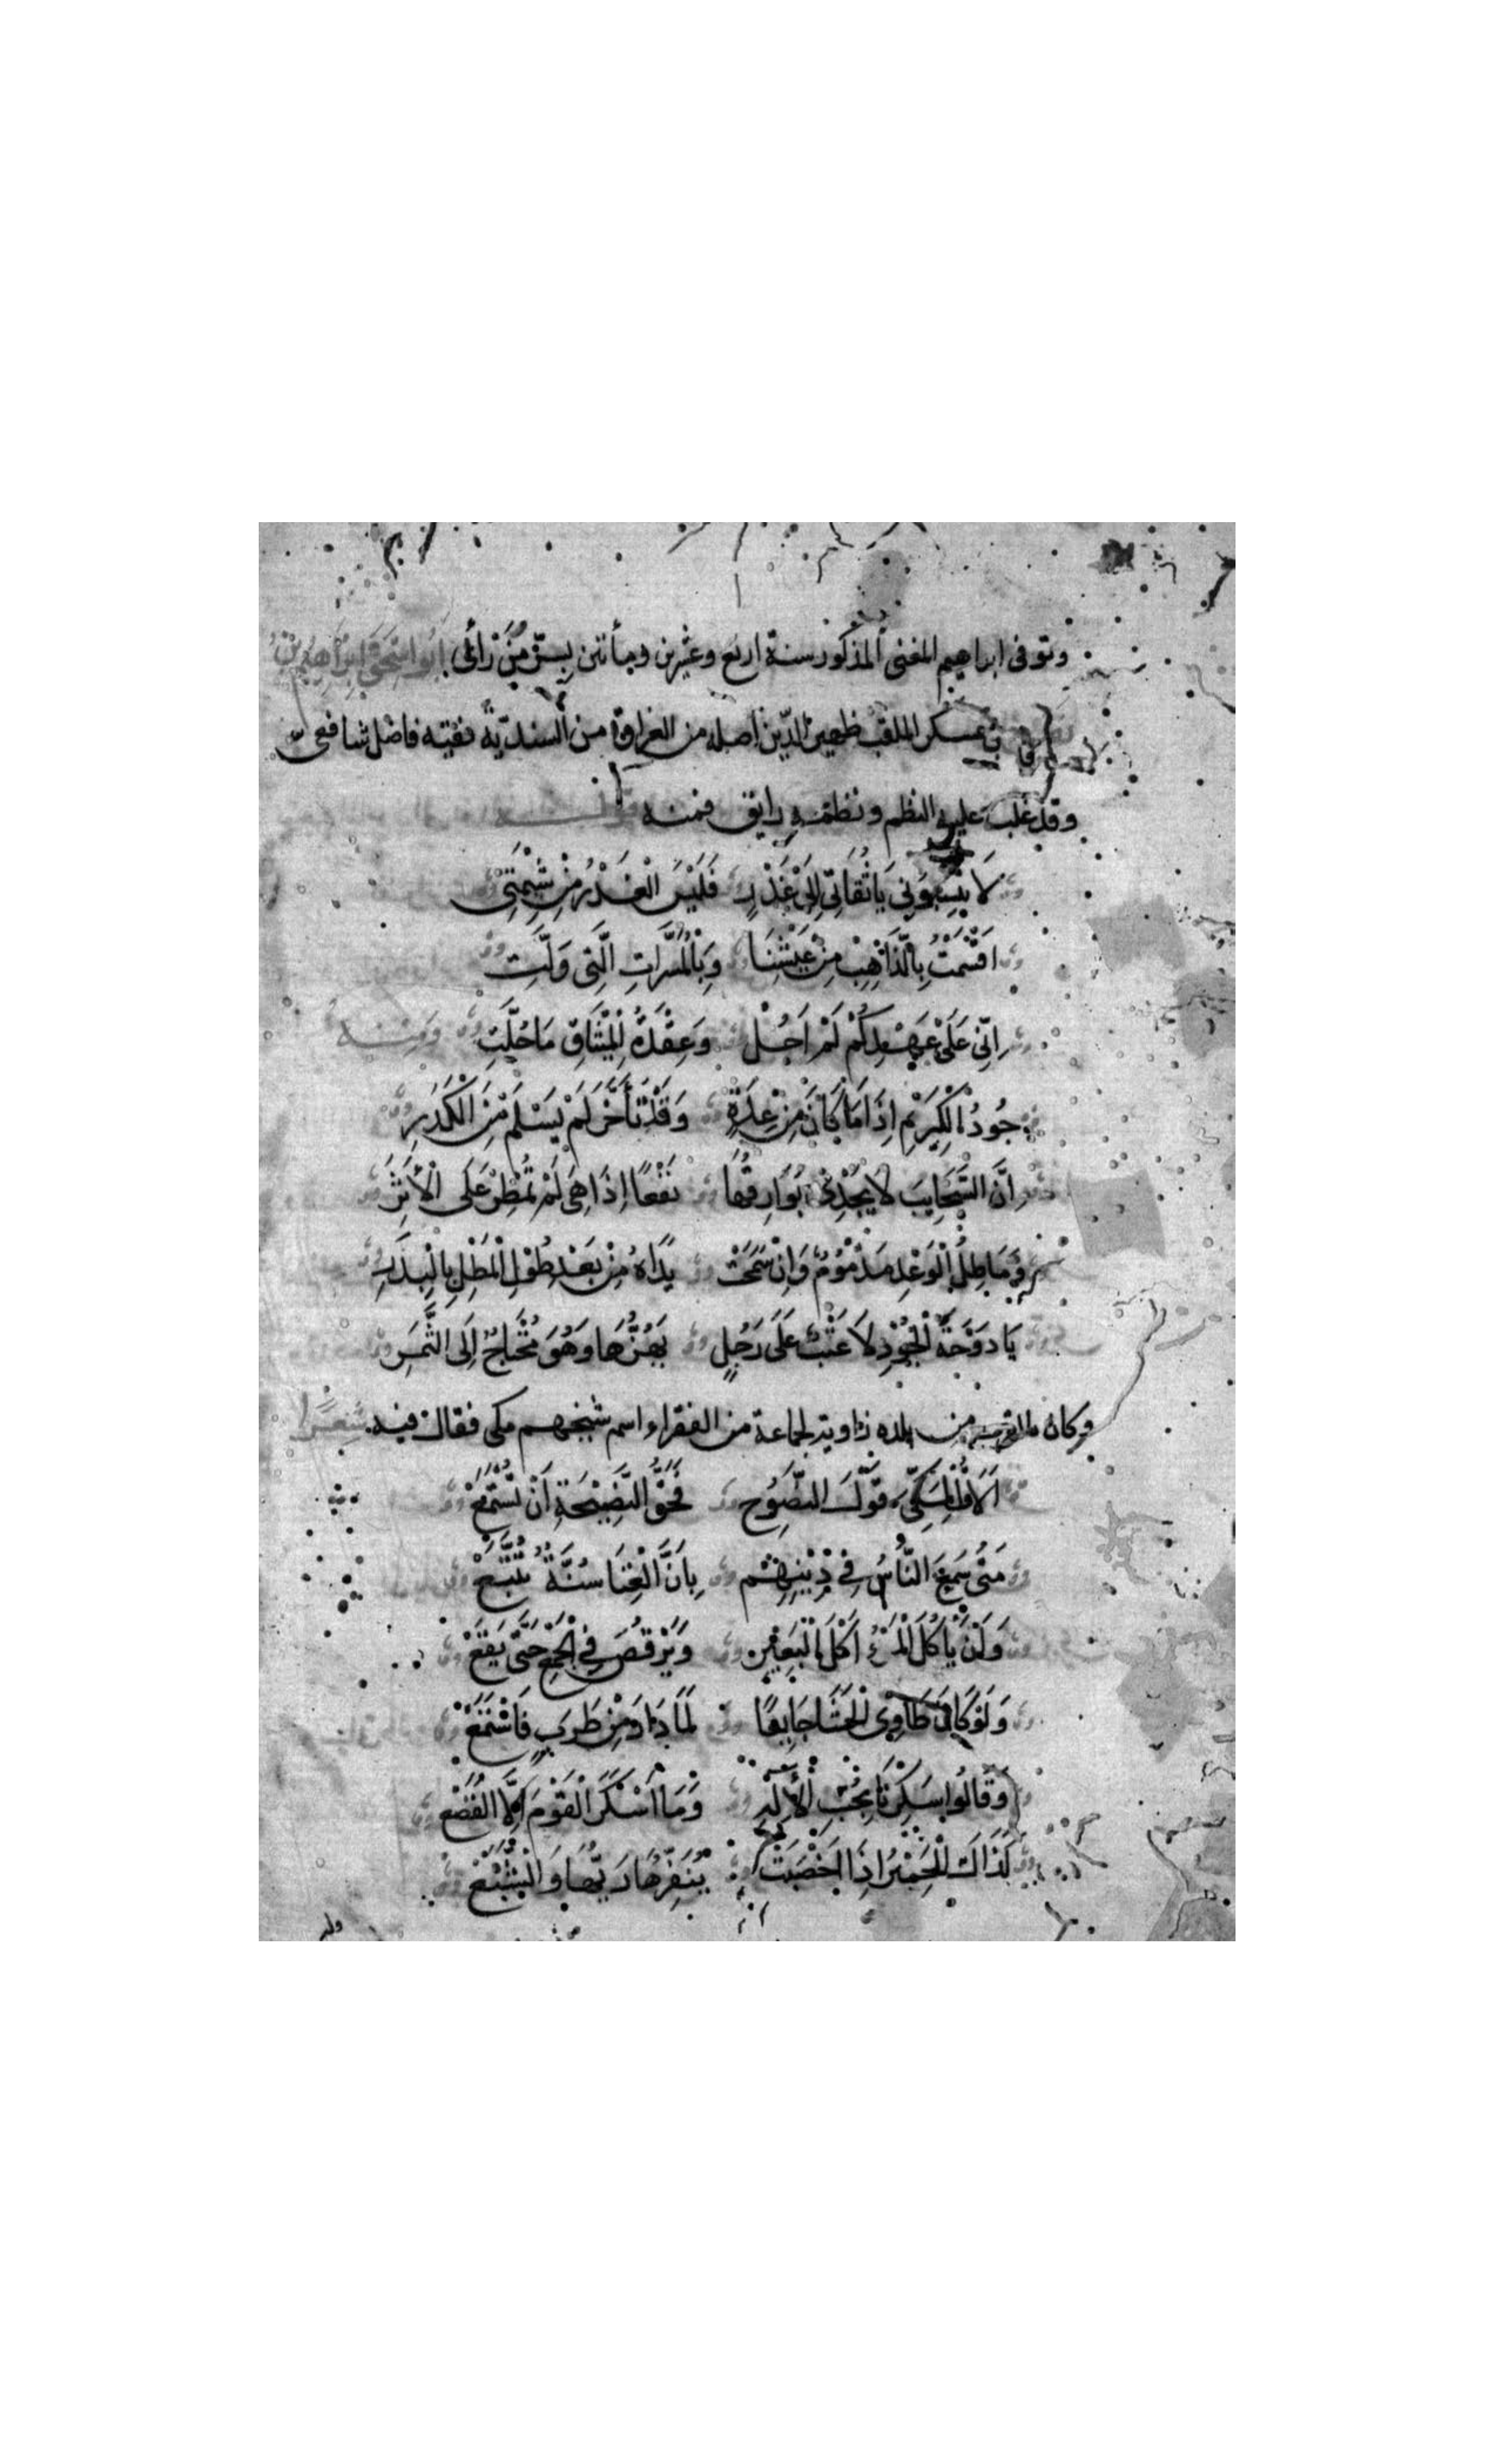 وتوفى ابراهيم المغنى المذكور سنة اربع وعشرين ومأتين بسرّ مَنْ رَأى ابُو اسْحَق ابْرَاهِيم بْنُ
بن عسكر الملقب ظهير الدّين اصله من العراق من السنديّة فقيه فاضل شافعى
وقد غلب عليه النظم ونظمه رايق فمنه
لَا تَنْسِبُونِى يَا ثُقَاتِى اِلَى غَدْرٍ فَلَيْسَ الْغَدْرُ مِنْ شِيْمَتِى
اقْسَمْتُ بِالذَّاهِبِ مِنْ عَيْشِنَا وَبِالْمَسَرَّاتِ الَّتِى وَلَّتِ
اِنِّى عَلَى عَهْدِكُمْ لَمْ اَحُلْ وَعِقْدَةُ الْمِيْثَاقِ مَا حُلَّتِ ومنه
جُودُ الْكَرِيْمِ اِذَا مَا كَانَ مِنْ عِدَةٍ وَقَدْ تَأَخَّرَ لَمْ يَسْلَمْ مِنَ الْكَدَرِ
اِنَّ السَّحَايِبَ لَا تُجْدِى بَوَارِقُهَا نَفْعًا اِذَا هِىَ لَمْ تُمْطِرْ عَلَى الْأَثَرِ
وَمَاطِلُ الْوَعْدِ مَذْمُوْمٌ وَاِنْ سَمَحَتْ يَدَاهُ مِنْ بَعْدِ طُوْلِ الْمَطْلِ بِالْبِدَرِ
يَا دَوْحَةَ الْجُوْدِ لَا عَتْبٌ عَلَى رَجُلٍ يَهُزُّهَا وَهُوَ مُحْتَاجٌ اِلَى الثَّمَرِ
وكان بالقرب من بلده زاوية لجماعة من الفقراء اسم شيخهم مكى فقال فيه شعرًا
اَلَا قُلْ لِمَكِّىِّ قَوْلَ النَّصُوْحِ فَحَقُّ النَّصِيْحَةِ اَنْ تُسْتَمَعْ
مَتَى سَمِعَ النَّاسُ فِى دِيْنِهِمْ بِاَنَّ الْغِنَا سُنَّةٌ تُتَّبَعْ
وَاَنْ يَأْكُلَ الْمَرْءُ اَكْلَ الْبَعِيْرِ وَيَرْقُصَ فِى الْجَمْعِ حَتَّى يَقَعْ
وَلَوْ كَانَ طَاوِى الْحَشَا جَايِعًا لَمَا دَارَ مِنْ طَرَبٍ فَاسْتَمَعْ
وَقَالُوا سَكِرْنَا بِحُبِّ الْإِلٰهِ وَمَا اَسْكَرَ الْقَوْمَ اِلَّا الْقَصَعْ
كَذَاكَ الْحَمِيْرُ اِذَا اَخْصَبَتْ يُنَفِّرُهَا رَيُّهَا وَالشِّبَعْ